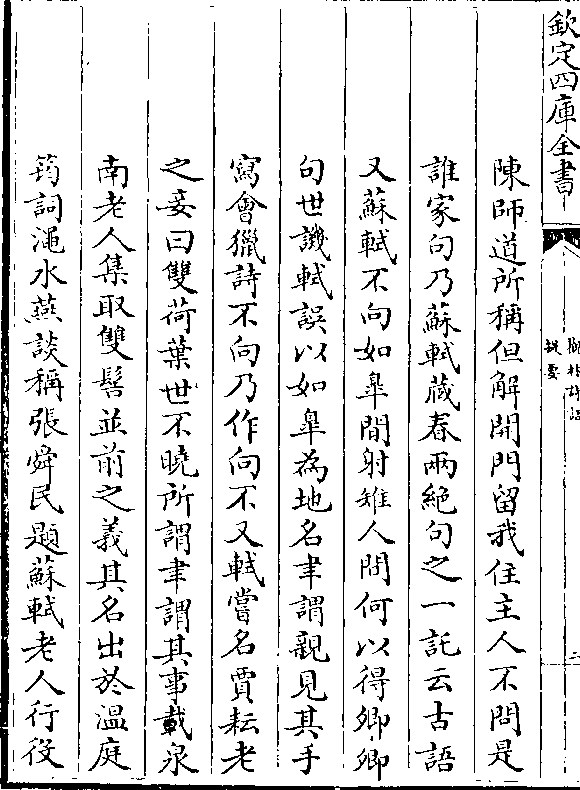 欽定四庫全書
提要
陳師道所稱但解開門留我住主人不問是
誰家句乃蘇軾藏春兩絶句之一託云古語
又蘇軾不向如臯閒射雉人間何以得卿卿
句世譏軾誤以如臯為地名聿謂親見其手
寫會獵詩不向乃作向不又軾嘗名賈耘老
之妾曰雙荷葉世不曉所謂聿謂其事載泉
南老人集取雙髻並前之義其名出於溫庭
筠詞澠水燕談稱張舜民題蘇軾老人行役